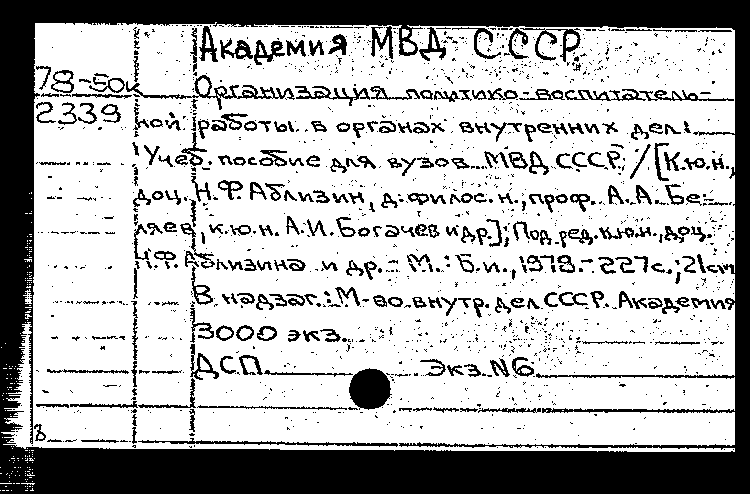 Академия МВД СССР.
78-50к Организация политико-воспитатель-
2339 ной работы в органах внутренних дел:
Учеб. пособие для вузов МВД СССР. / [К.ю.н.,
доц. Н.Ф. Аблизин, д.филос.н., проф. А.А. Бе-
ляев, к.ю.н. А.И. Богачев и др.]; Под ред. к.ю.н., доц.
Н.Ф. Аблизина и др. - М.: Б.и., 1978. - 227с.; 21cm
В надзаг.: М-во внутр. дел СССР. Академия
3000 экз.
ДСП. Экз. N6.
8